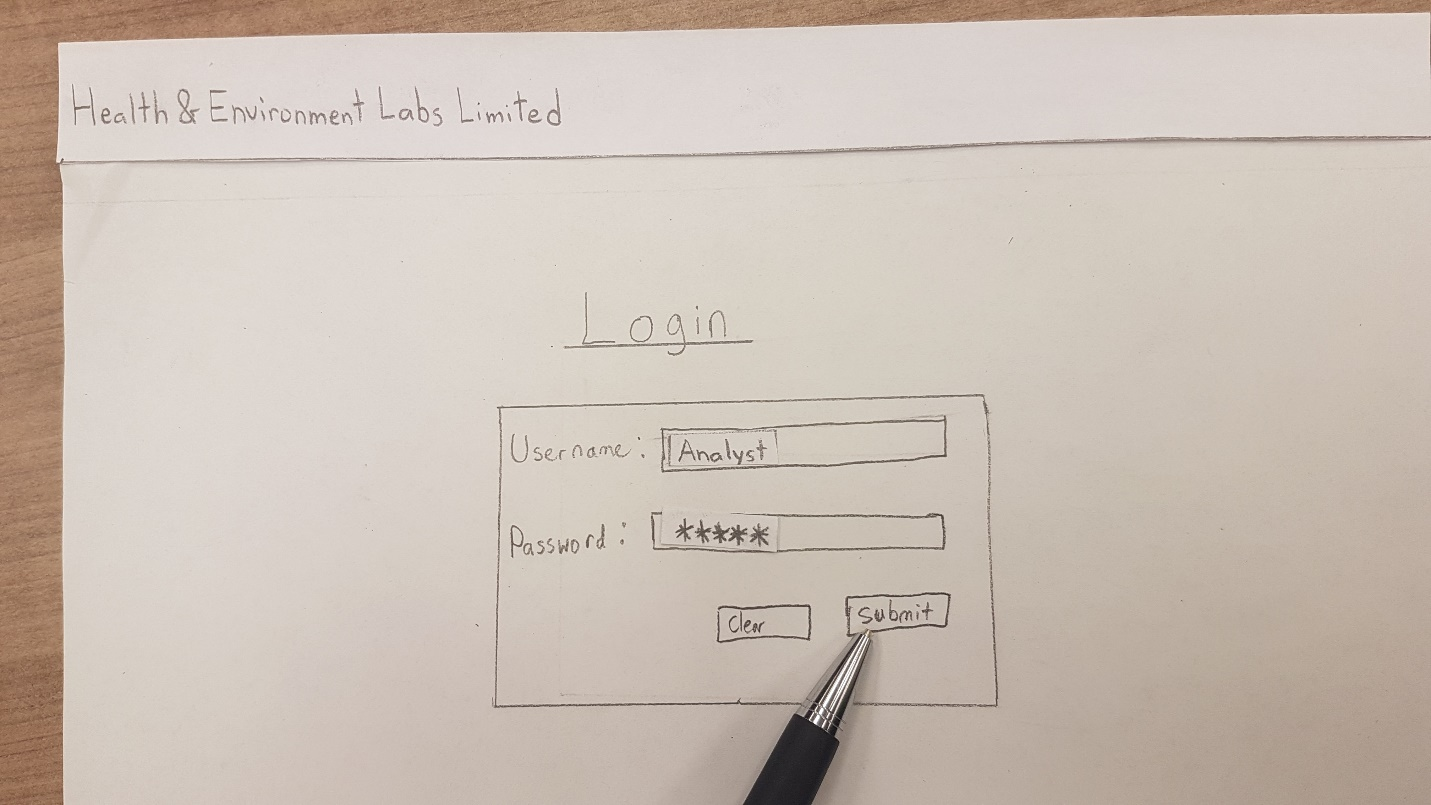 Health & Environment Labs Limited
Login
Username: Analyst
Password: *****
Clear
Submit